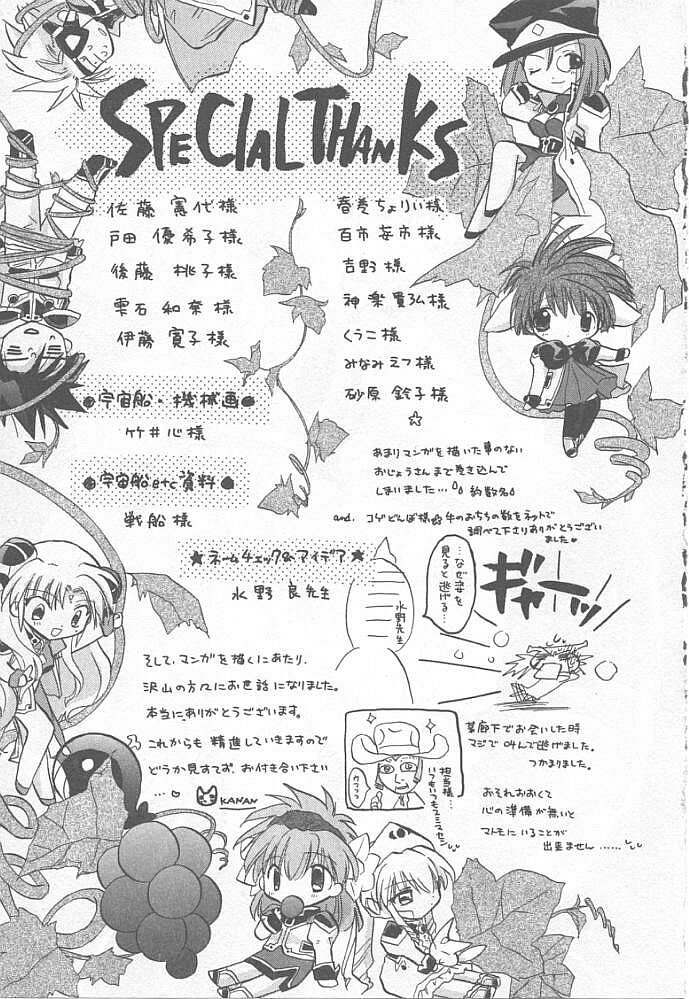 SPECIAL THANKS
佐藤憲代様
戸田優希子様
後藤桃子様
雫石和奈様
伊藤寛子様
春巻ちょりぃ様
百市安市様
吉野様
神楽貴弘様
くうこ様
みなみえつ様
砂原鈴子様
☆
●宇宙船・機械画●
竹井心様
●宇宙船etc資料●
戦船様
あまりマンガを描いた事のない
おじょうさんまで巻き込んで
しまいました…約数名
and. コゲどんぼ様☆牛のおちちの数をネットで
調べて下さりありがとうござい
ました
★ネームチェック&アイデア★
水野良先生
…なぜ妾を
見ると逃げる…
水野先生
ギャーッッ
そして、マンガを描くにあたり、
沢山の方々にお世話になりました。
本当にありがとうございます。
これからも精進していきますので
どうか見すてず、お付き合い下さい
…♡
KANAN
ウフフフ
担当様…
いつもいつもスミマセン
某廊下でお会いした時
マジで叫んで逃げました。
つかまりました。
おそれおおくて
心の準備が無いと
マトモにいることが
出来ません……